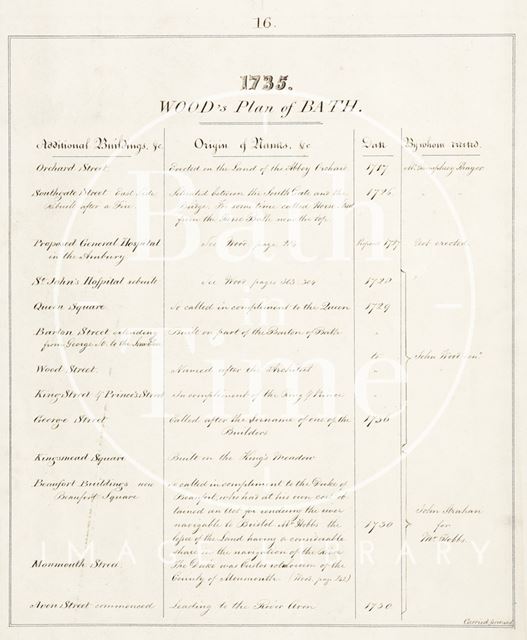 16.
1735.
WOOD's Plan of BATH.
Additional Buildings, &c. Origin of Names, &c Date By whom erected.
Orchard Street Erected on the Land of the Abbey Orchard 1717 Mr Humphrey Thayer
Southgate Street East Side Situated between the South Gate and the 1725
rebuilt after a Fire. Bridge. For some time called Horse Street
from the Horse Bath near the top.
Proposed General Hospital See Wood page 1727 Not erected.
in the Ambury
St John's Hospital rebuilt See Wood pages 303. 304 1728
Queen Square so called in compliment to the Queen 1729
Barton Street extending Built on part of the Barton of Bath
from George St. to the to John Wood
Wood Street Named after the Architect
King Street & Prince's Street In compliment of the King & Prince
George Street Called after the Surname of one of the 1736
Builders
Kingsmead Square Built on the King's Meadow
Beaufort Buildings now so called in compliment to the Duke of
Beauford Square Beaufort, who has at his own cost ob-
tained an Act for rendering the river John Strahan
navigable to Bristol. Mr Hobbs the 1730 for
of the Land having a considerable Mr Hobbs.
share in the navigation of the River
Monmouth Street The Duke was Custos of the
County of Monmouth (Wood, page 242)
Avon Street commenced Leading to the River Avon 1730
Carried forward
Bath
in
Time
IMAGE LIBRARY